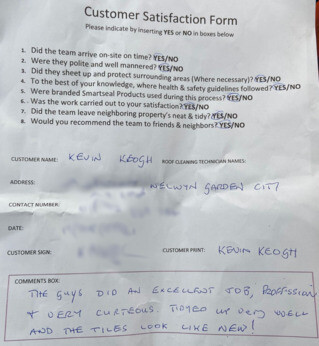 Customer Satisfaction Form
Please indicate by inserting YES or NO in boxes below
1. Did the team arrive on-site on time? YES/NO
2. Were they polite and well mannered? YES/NO
3. Did they sheet up and protect surrounding areas (Where necessary)? YES/NO
4. To the best of your knowledge, where health & safety guidelines followed? YES/NO
5. Were branded Smartseal Products used during this process? YES/NO
6. Was the work carried out to your satisfaction? YES/NO
7. Did the team leave neighboring property's neat & tidy? YES/NO
8. Would you recommend the team to friends & neighbors? YES/NO
CUSTOMER NAME: KEVIN KEOGH ROOF CLEANING TECHNICIAN NAMES:
ADDRESS: WELWYN GARDEN CITY
CONTACT NUMBER:
DATE:
CUSTOMER SIGN: CUSTOMER PRINT: KEVIN KEOGH
COMMENTS BOX:
THE GUYS DID AN EXCELLENT JOB, PROFESSION
& VERY CURTEOUS. TIDIED UP VERY WELL
AND THE TILES LOOK LIKE NEW!